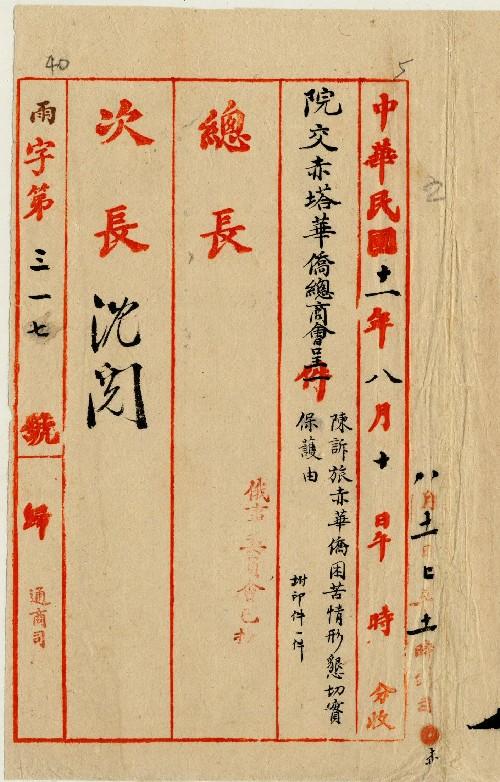 5
中華民國十一年八月十日午時分收
院交赤塔華僑總商會呈一件
陳訴旅赤華僑困苦情形懇切實
保護由
附印件一件
總長
俄事委員會已抄
次長
沈閱
40
雨字第三一七號歸
通商司